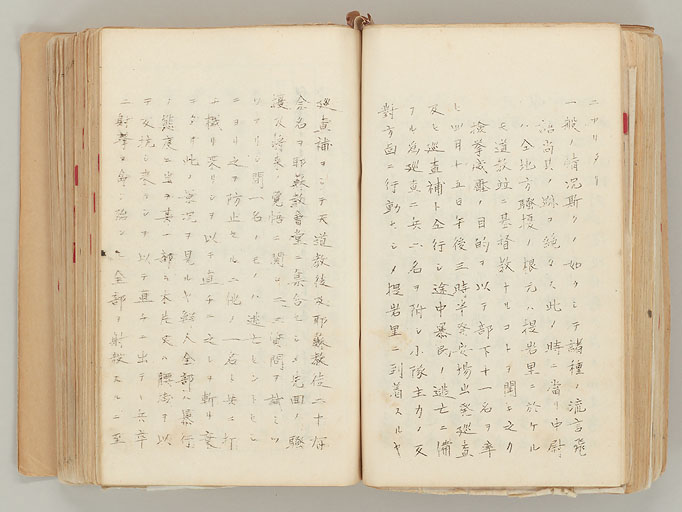 ニアリタリ
一般ノ情況斯クノ如クシテ諸種ノ流言飛
語尚其ノ跡ヲ絶タス此ノ時ニ當リ中尉
ハ全地方騒擾ノ根元ハ提岩里ニ於ケル
天道教並ニ基督教ナルコトヲ聞キ之カ
檢擧威壓ノ目的ヲ以テ部下十一名ヲ率
ヒ四月十五日午後三時半発安場出発巡査
及ヒ巡査補ト仝行シ途中暴民ノ逃亡ニ備
フル為巡査ニ兵 名ヲ附シ小隊主力ノ反
對方面ニ行動セシメ提岩里ニ到着スルヤ
巡査補ヲシテ天道教徒及耶蘇教徒二十
余名ヲ耶蘇教會堂ニ集合セシメ先回ノ騒
擾及将来ノ覚悟ニ関シ二三審問ヲ試ミツ
ツアリシ間一名ノモノハ逃亡セントセシ
ニヨリ之ヲ防止セルニ他ノ一名ト共ニ打
チ掛リ来リシヲ以テ直チニ之ヲ斬リ棄
テタリ此ノ景況ヲ見ルヤ鮮人全部ハ暴行
ノ態度ニ出テ其一部ハ木片又ハ腰掛ヲ以
テ反抗シ来ラシヲ以テ直チニ出テテ兵卒
ニ射撃ヲ命シ殆ント全部ヲ射殺スルニ至